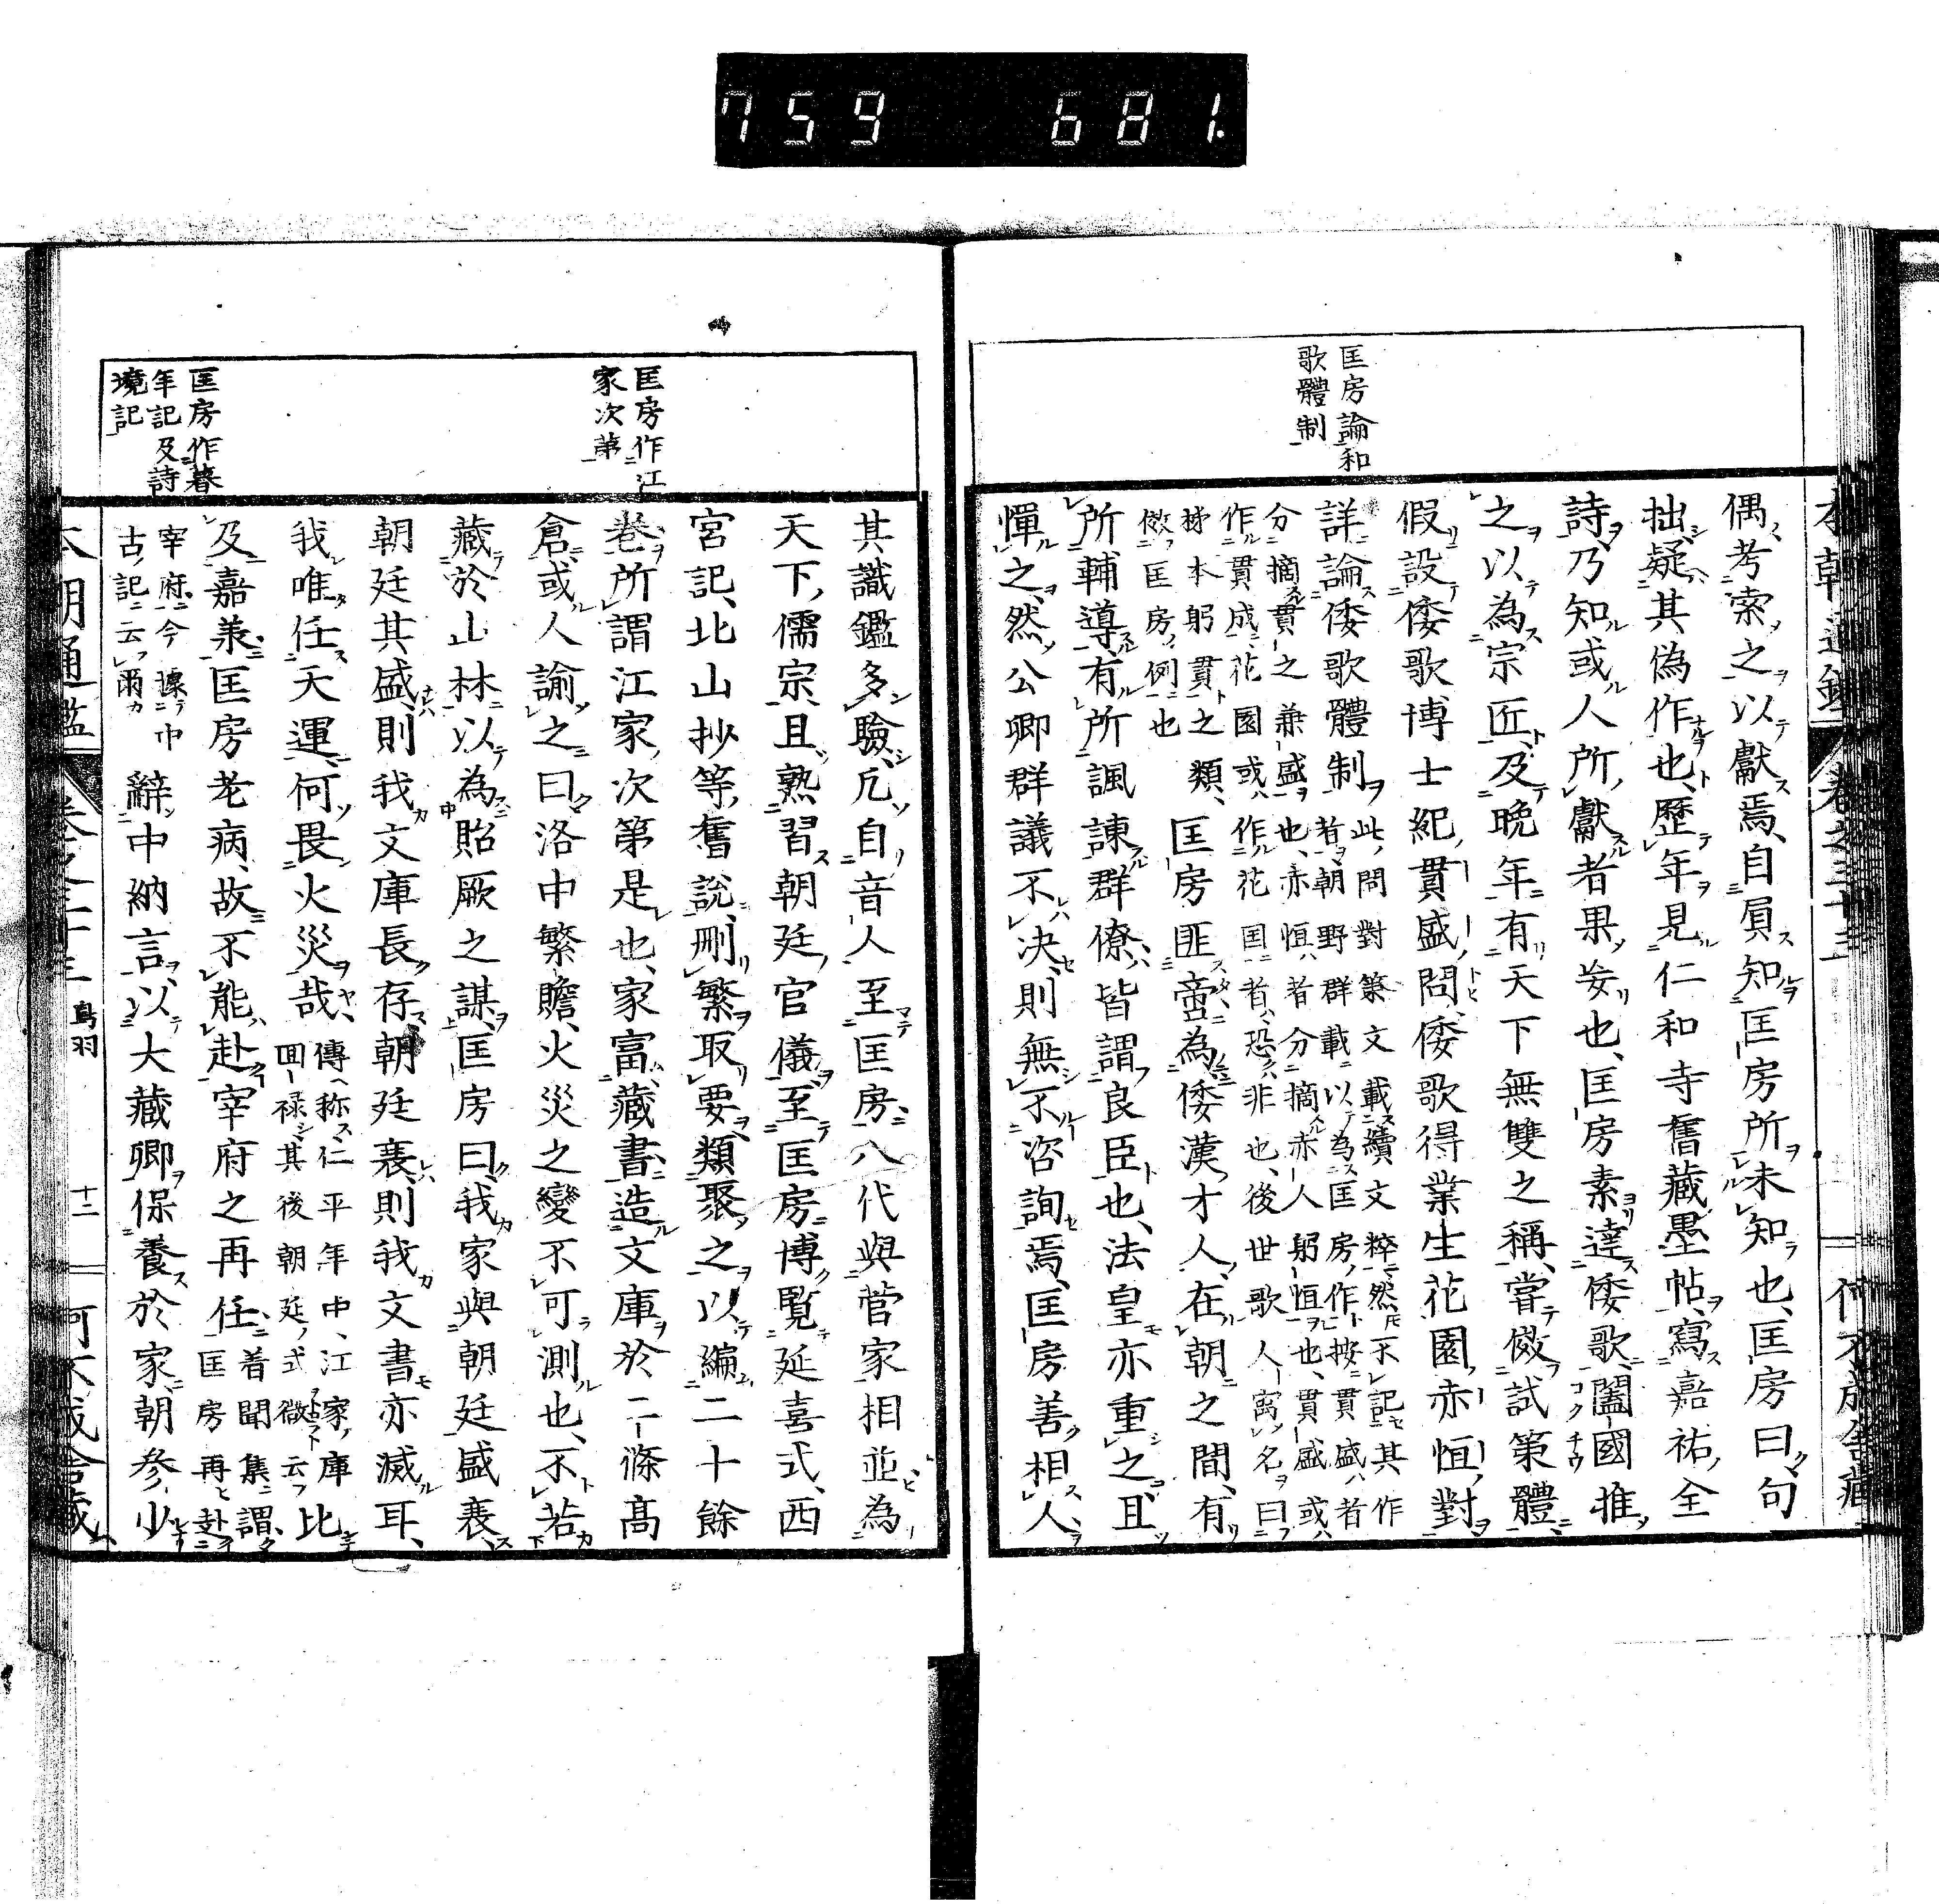 759 681.
匡房論和
歌體制
本朝通鑑 卷之三十三 何不成舍藏
偶考索之以獻焉自屓知匡房所未知也匡房曰句
拙疑其僞作也歷年見仁和寺舊藏墨帖寫嘉祐全
詩乃知或人所獻者果妄也匡房素達倭歌闔國推
之以為宗匠及晩年有天下無雙之稱嘗傚試策體
假設倭歌博士紀貫盛問倭歌得業生花園赤恒對
詳論倭歌體制
此問對策文載續文粹然不記其作
者朝野群載以為匡房作按貫盛者
分摘貫之兼盛也赤恒者分摘赤人躬恒也貫盛或
作貫成花園或作花国者恐非也後世歌人寓名曰
梯本躬貫之類
傚匡房例也
匡房匪啻為倭漢才人在朝之間有
所輔導有所諷諫群僚皆謂良臣也法皇亦重之且
憚之然公卿群議不決則無不咨詢焉匡房善相人
匡房作江
家次第
匡房作暮
年記及詩
境記
其識鑑多驗凢自音人至匡房八代與菅家相並為
天下儒宗且熟習朝廷官儀至匡房博覧延喜式西
宮記北山抄等舊說刪繁取要類聚之以編二十餘
卷所謂江家次第是也家富藏書造文庫於二條高
倉或人諭之曰洛中繁贍火災之變不可測也不若
藏於山林以為貽厥之謀匡房曰我家與朝廷盛衰
朝廷其盛則我文庫長存朝廷衰則我文書亦滅耳
我唯任天運何畏火災哉
傳称仁平年中江家庫
囬禄其後朝廷式微云
比
及嘉兼匡房老病故不能赴宰府之再任
著聞集謂
匡房再赴
宰府今據中
古記云爾
辭中納言以大藏卿保養於家朝參少
本朝通鑑 卷之三十三 鳥羽 十二 何不成舍藏